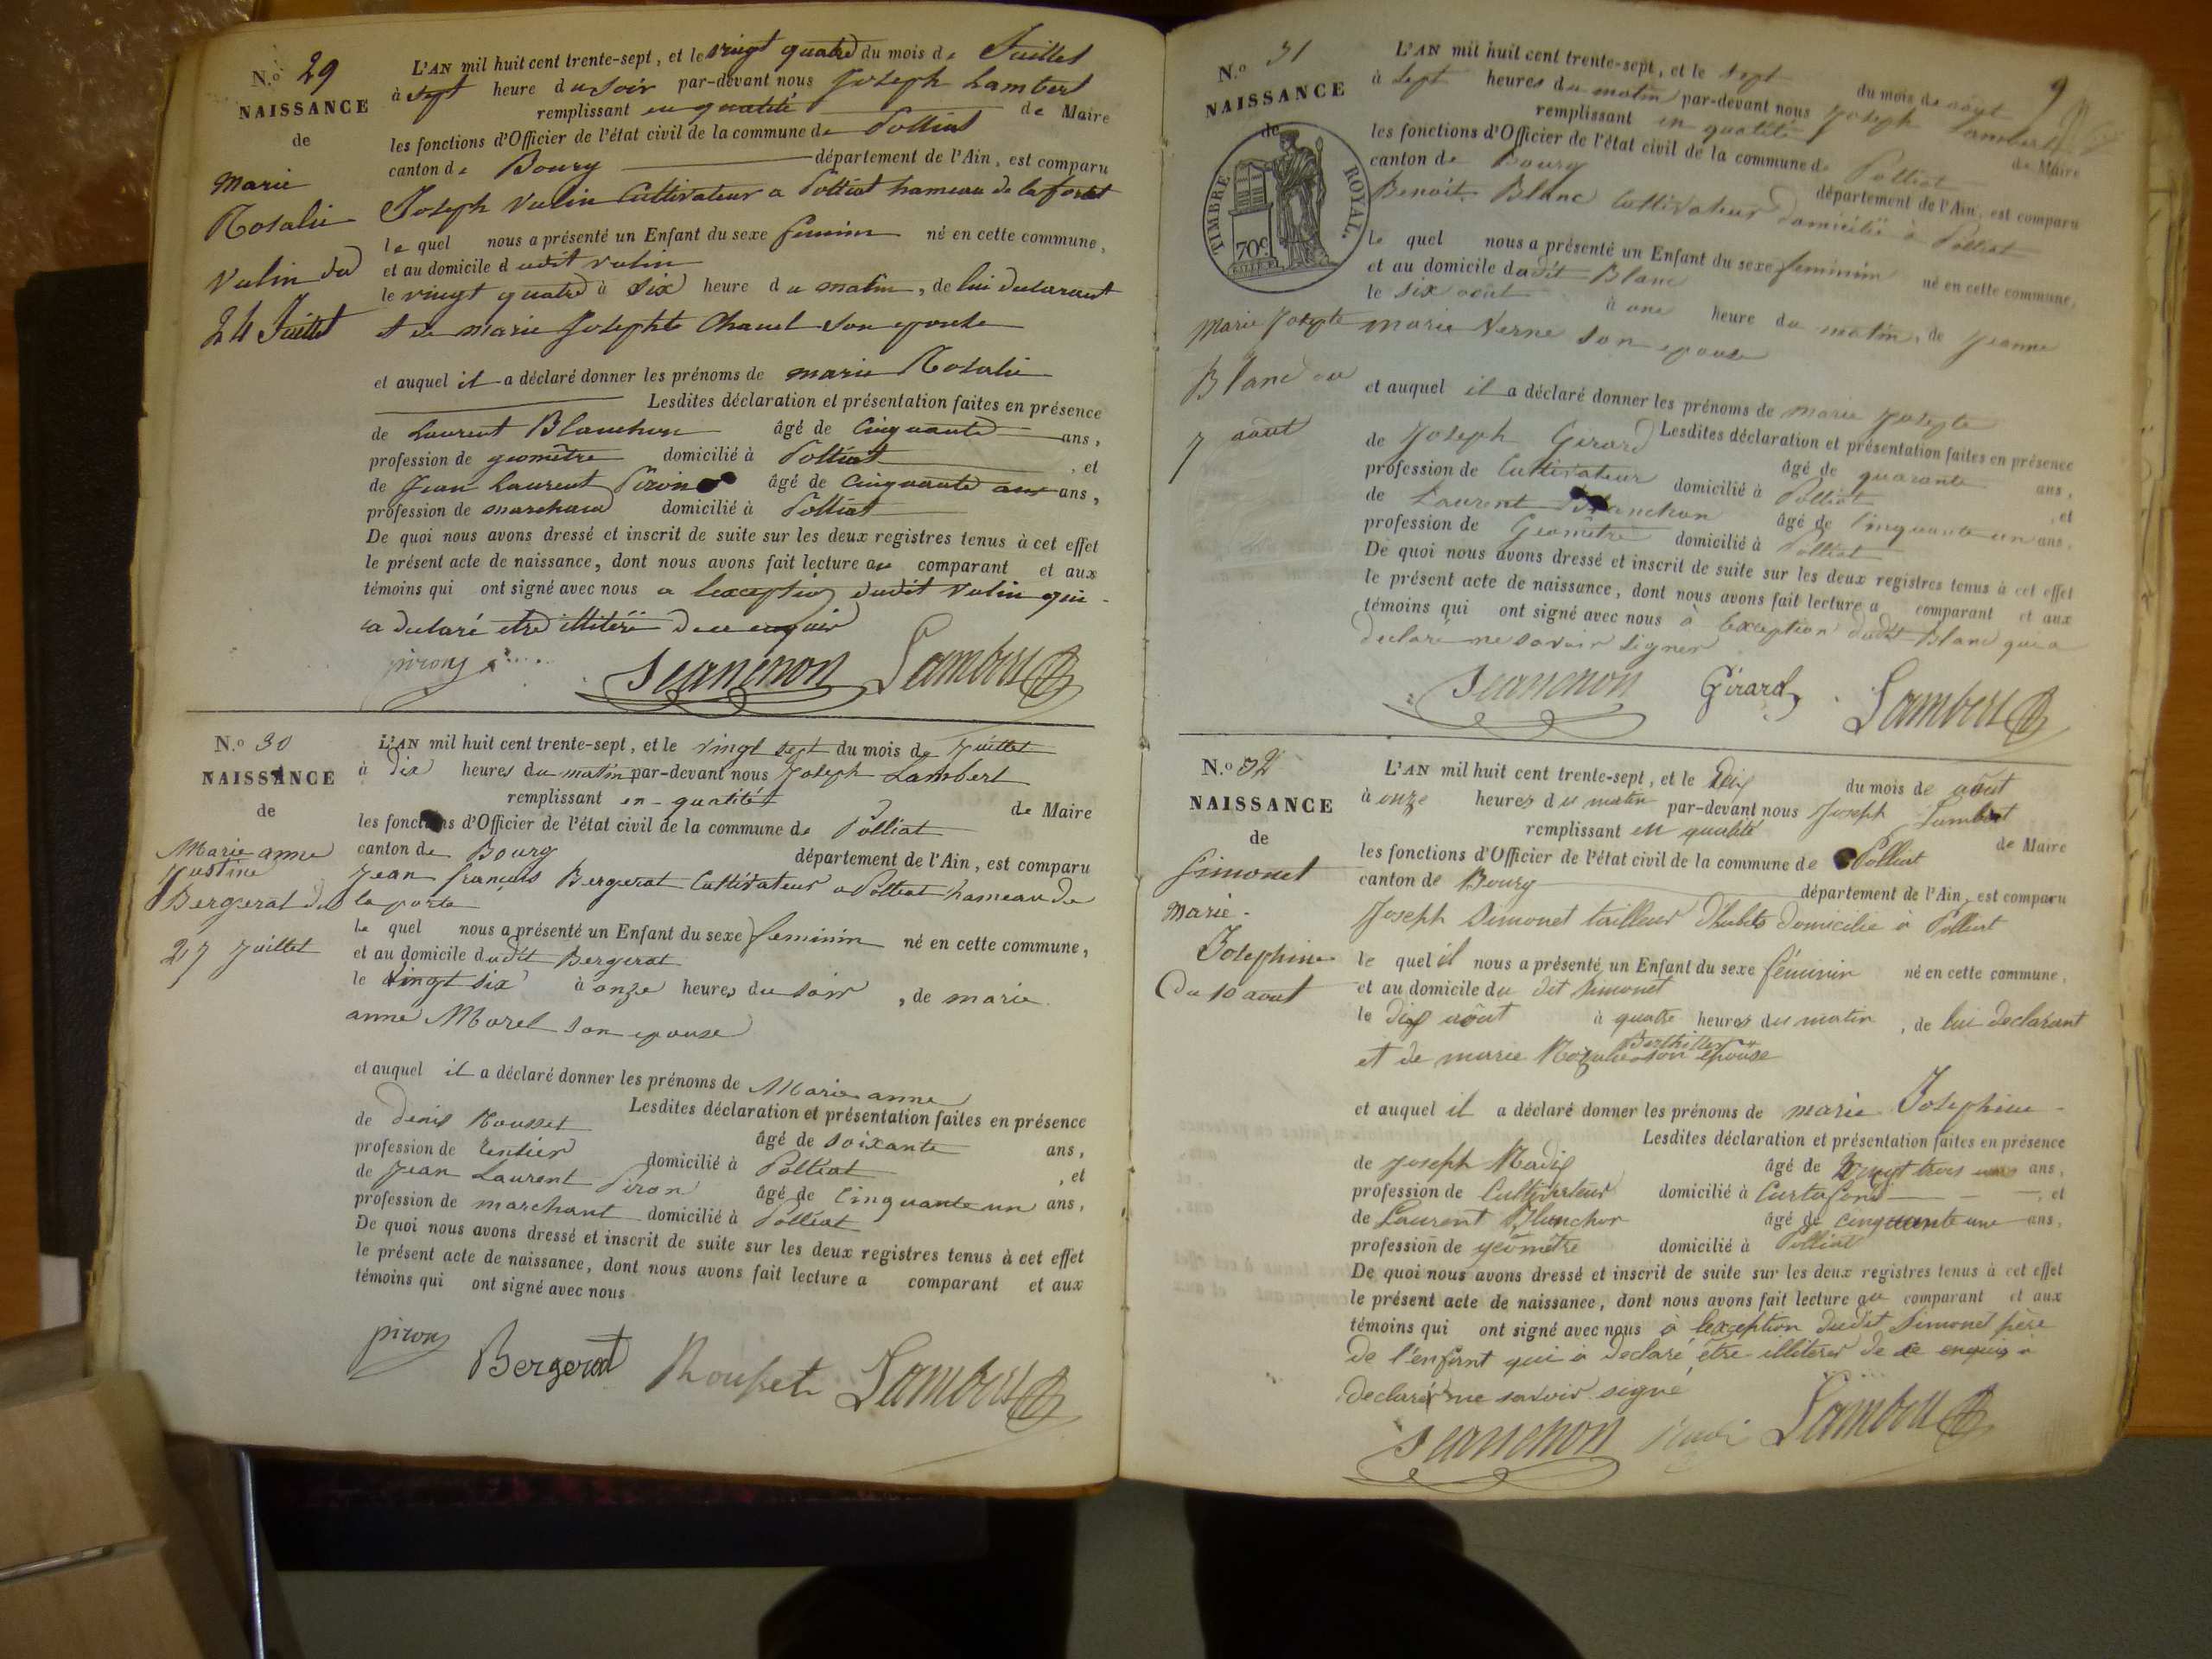 N.o 29
NAISSANCE
de
Marie
Rosalie
Vulin du
24 Juillet
L'AN mil huit cent trente-sept, et le vingt quatre du mois de Juillet
à sept heure du soir par-devant nous Joseph Lambert
remplissant en qualité de Maire
les fonctions d'Officier de l'état civil de la commune de Polliat
canton de Bourg département de l'Ain, est comparu
Joseph Vulin Cultivateur a Polliat hameau de la foret
le quel nous a présenté un Enfant du sexe feminin né en cette commune,
et au domicile dudit vulin
le vingt quatre à six heure du matin, de lui declarant
et de marie Josephte Chanel son epouse
et auquel il a déclaré donner les prénoms de marie Rosalie
Lesdites déclaration et présentation faites en présence
de Laurent Blanchon âgé de Cinquante ans,
profession de geomètre domicilié à Polliat, et
de Jean Laurent Piron âgé de cinquante ans ans,
profession de marchand domicilié à Polliat
De quoi nous avons dressé et inscrit de suite sur les deux registres tenus à cet effet
le présent acte de naissance, dont nous avons fait lecture au comparant et aux
témoins qui ont signé avec nous a lexception dudit Vulin qui
a declaré etre illiteré de ce enquis
piron Blanchon Lambert
N.o 30
NAISSANCE
de
Marie anne
Justine
Bergerat du
27 Juillet
L'AN mil huit cent trente-sept, et le vingt sept du mois de Juillet
à dix heures du matin par-devant nous Joseph Lambert
remplissant en qualité de Maire
les fonctions d'Officier de l'état civil de la commune de Polliat
canton de Bourg département de l'Ain, est comparu
Jean françois Bergerat Cultivateur a Polliat hameau de
la porte
le quel nous a présenté un Enfant du sexe feminin né en cette commune,
et au domicile dudit Bergerat
le vingt six à onze heures du soir, de marie
anne Morel son epouse
et auquel il a déclaré donner les prénoms de Marie anne
Lesdites déclaration et présentation faites en présence
de denis Rousset âgé de soixante ans,
profession de rentier domicilié à Polliat, et
de Jean Laurent Piron âgé de Cinquante un ans,
profession de marchant domicilié à Polliat
De quoi nous avons dressé et inscrit de suite sur les deux registres tenus à cet effet
le présent acte de naissance, dont nous avons fait lecture a comparant et aux
témoins qui ont signé avec nous
piron Bergerat Rousset Lambert
9
N.o 31
NAISSANCE
de
TIMBRE ROYAL.
70c
Marie Josepte
Blanc du
7 août
L'AN mil huit cent trente-sept, et le sept du mois de aout
à sept heures du matin par-devant nous Joseph Lambert
remplissant en qualité de Maire
les fonctions d'Officier de l'état civil de la commune de Polliat
canton de Bourg département de l'Ain, est comparu
Benoit Blanc Cultivateur domicilié à Polliat
le quel nous a présenté un Enfant du sexe feminin né en cette commune,
et au domicile dudit Blanc
le six août à une heure du matin, de Jeanne
marie Verne son epouse
et auquel il a déclaré donner les prénoms de marie josepte
Lesdites déclaration et présentation faites en présence
de Joseph Girard âgé de quarante ans,
profession de Cultivateur domicilié à Polliat, et
de Laurent Blanchon âgé de Cinquante un ans,
profession de Geomètre domicilié à Polliat
De quoi nous avons dressé et inscrit de suite sur les deux registres tenus à cet effet
le présent acte de naissance, dont nous avons fait lecture a comparant et aux
témoins qui ont signé avec nous à lexception dudit Blanc qui a
declaré ne savoir signer
Blanchon Girard Lambert
N.o 32
NAISSANCE
de
Simonet
Marie
Josephine
Du 10 aout
L'AN mil huit cent trente-sept, et le dix du mois de août
à onze heures du matin par-devant nous Joseph Lambert
remplissant en qualité de Maire
les fonctions d'Officier de l'état civil de la commune de Polliat
canton de Bourg département de l'Ain, est comparu
Joseph Simonet tailleur d'habits domicilié à Polliat
le quel il nous a présenté un Enfant du sexe féminin né en cette commune,
et au domicile du dit simonet
le dix août à quatre heures du matin, de lui declarant
Berthillier
et de marie Rozalie son epouse
et auquel il a déclaré donner les prénoms de marie Josephine
Lesdites déclaration et présentation faites en présence
de Joseph âgé de vingt trois ans,
profession de Cultivateur domicilié à Curtafond, et
de Laurent Blanchon âgé de cinquante une ans,
profession de géomètre domicilié à Polliat
De quoi nous avons dressé et inscrit de suite sur les deux registres tenus à cet effet
le présent acte de naissance, dont nous avons fait lecture au comparant et aux
témoins qui ont signé avec nous à lexception dudit Simonet père
de l'enfant qui à declaré être illiteré de ce enquis à
declaré ne savoir signé
Blanchon Lambert